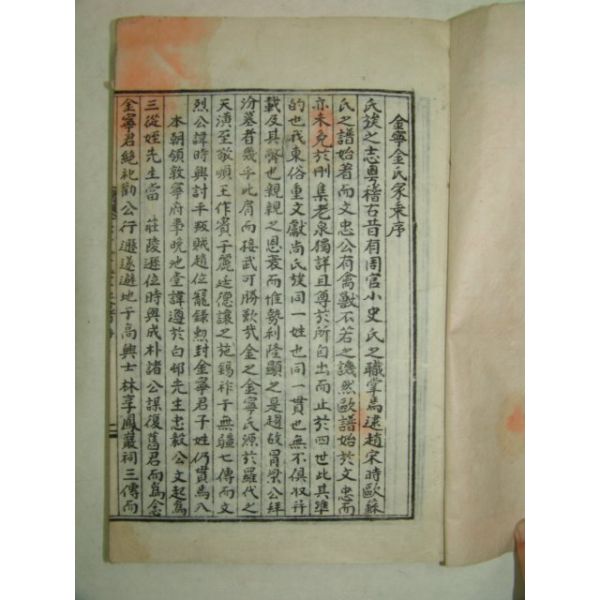 金寧金氏家乘序
氏族之志粵稽古昔有周官小史氏之職掌焉逮趙宋時歐蘇
氏之譜始著而文忠公有禽獸不若之譏然歐譜始於文忠而
亦未免於刪集老泉獨詳且尊於所自出而止於四世此其準
的也我東俗重文獻尚氏族同一姓也同一貫也無不俱收幷
載及其弊也親親之恩衰而惟勢利隆顯之是趨故冒榮公拜
汾墓者幾乎比肩而接武可勝歎哉金之金寧氏源於羅代之
天潢至敬順王作賓于麗廷德讓之施錫祚于無疆七傳而文
烈公諱時興討平叛賊趙位寵錄勳封金寧君子姓仍貫焉八
本朝領敦寧府事晩地堂諱遵於白邨先生忠毅公文起爲
三從姪先生當 莊陵遜位時與成朴諸公謀復舊君而爲念
金寧君絶祀勸公行遯遂避地于高興士林享鳳巖祠三傳而